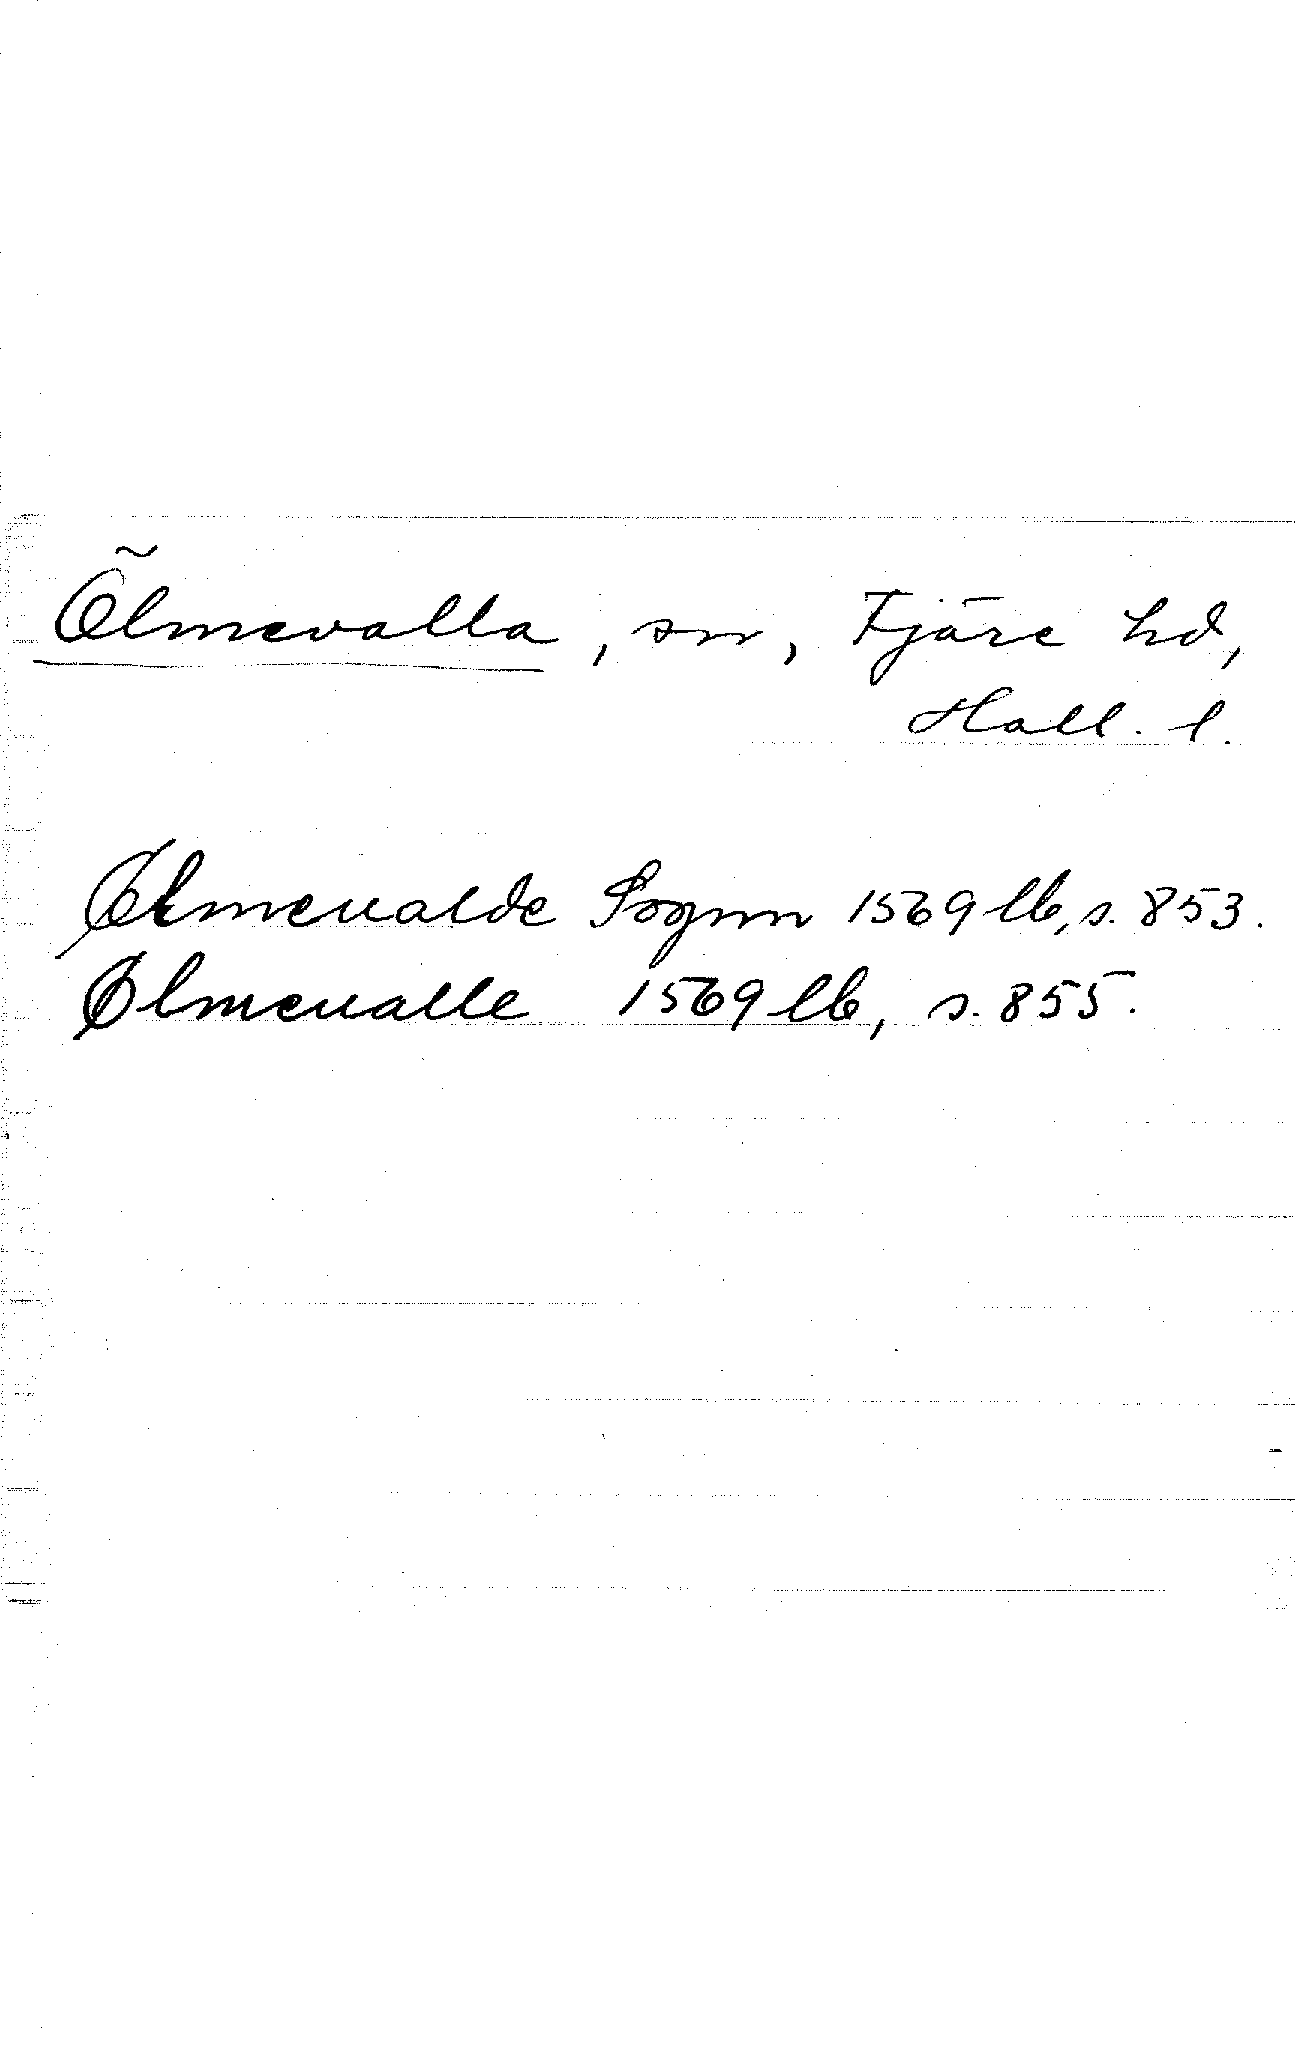 Ölmevalla, sn, Fjäre hd,
Hall. l.
Ølmeualde Sognn 1569 lb, s. 853.
Ølmeualle 1569 lb, s. 855.